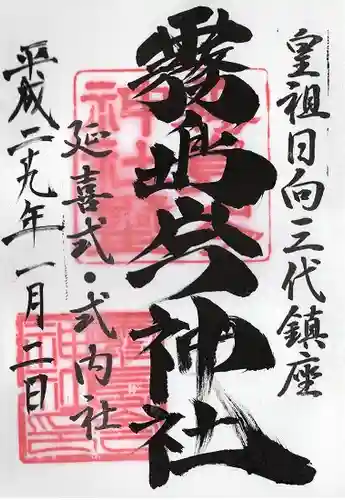 皇祖日向三代鎮座
霧島岑神社
延喜式・式内社
平成二十九年一月二日